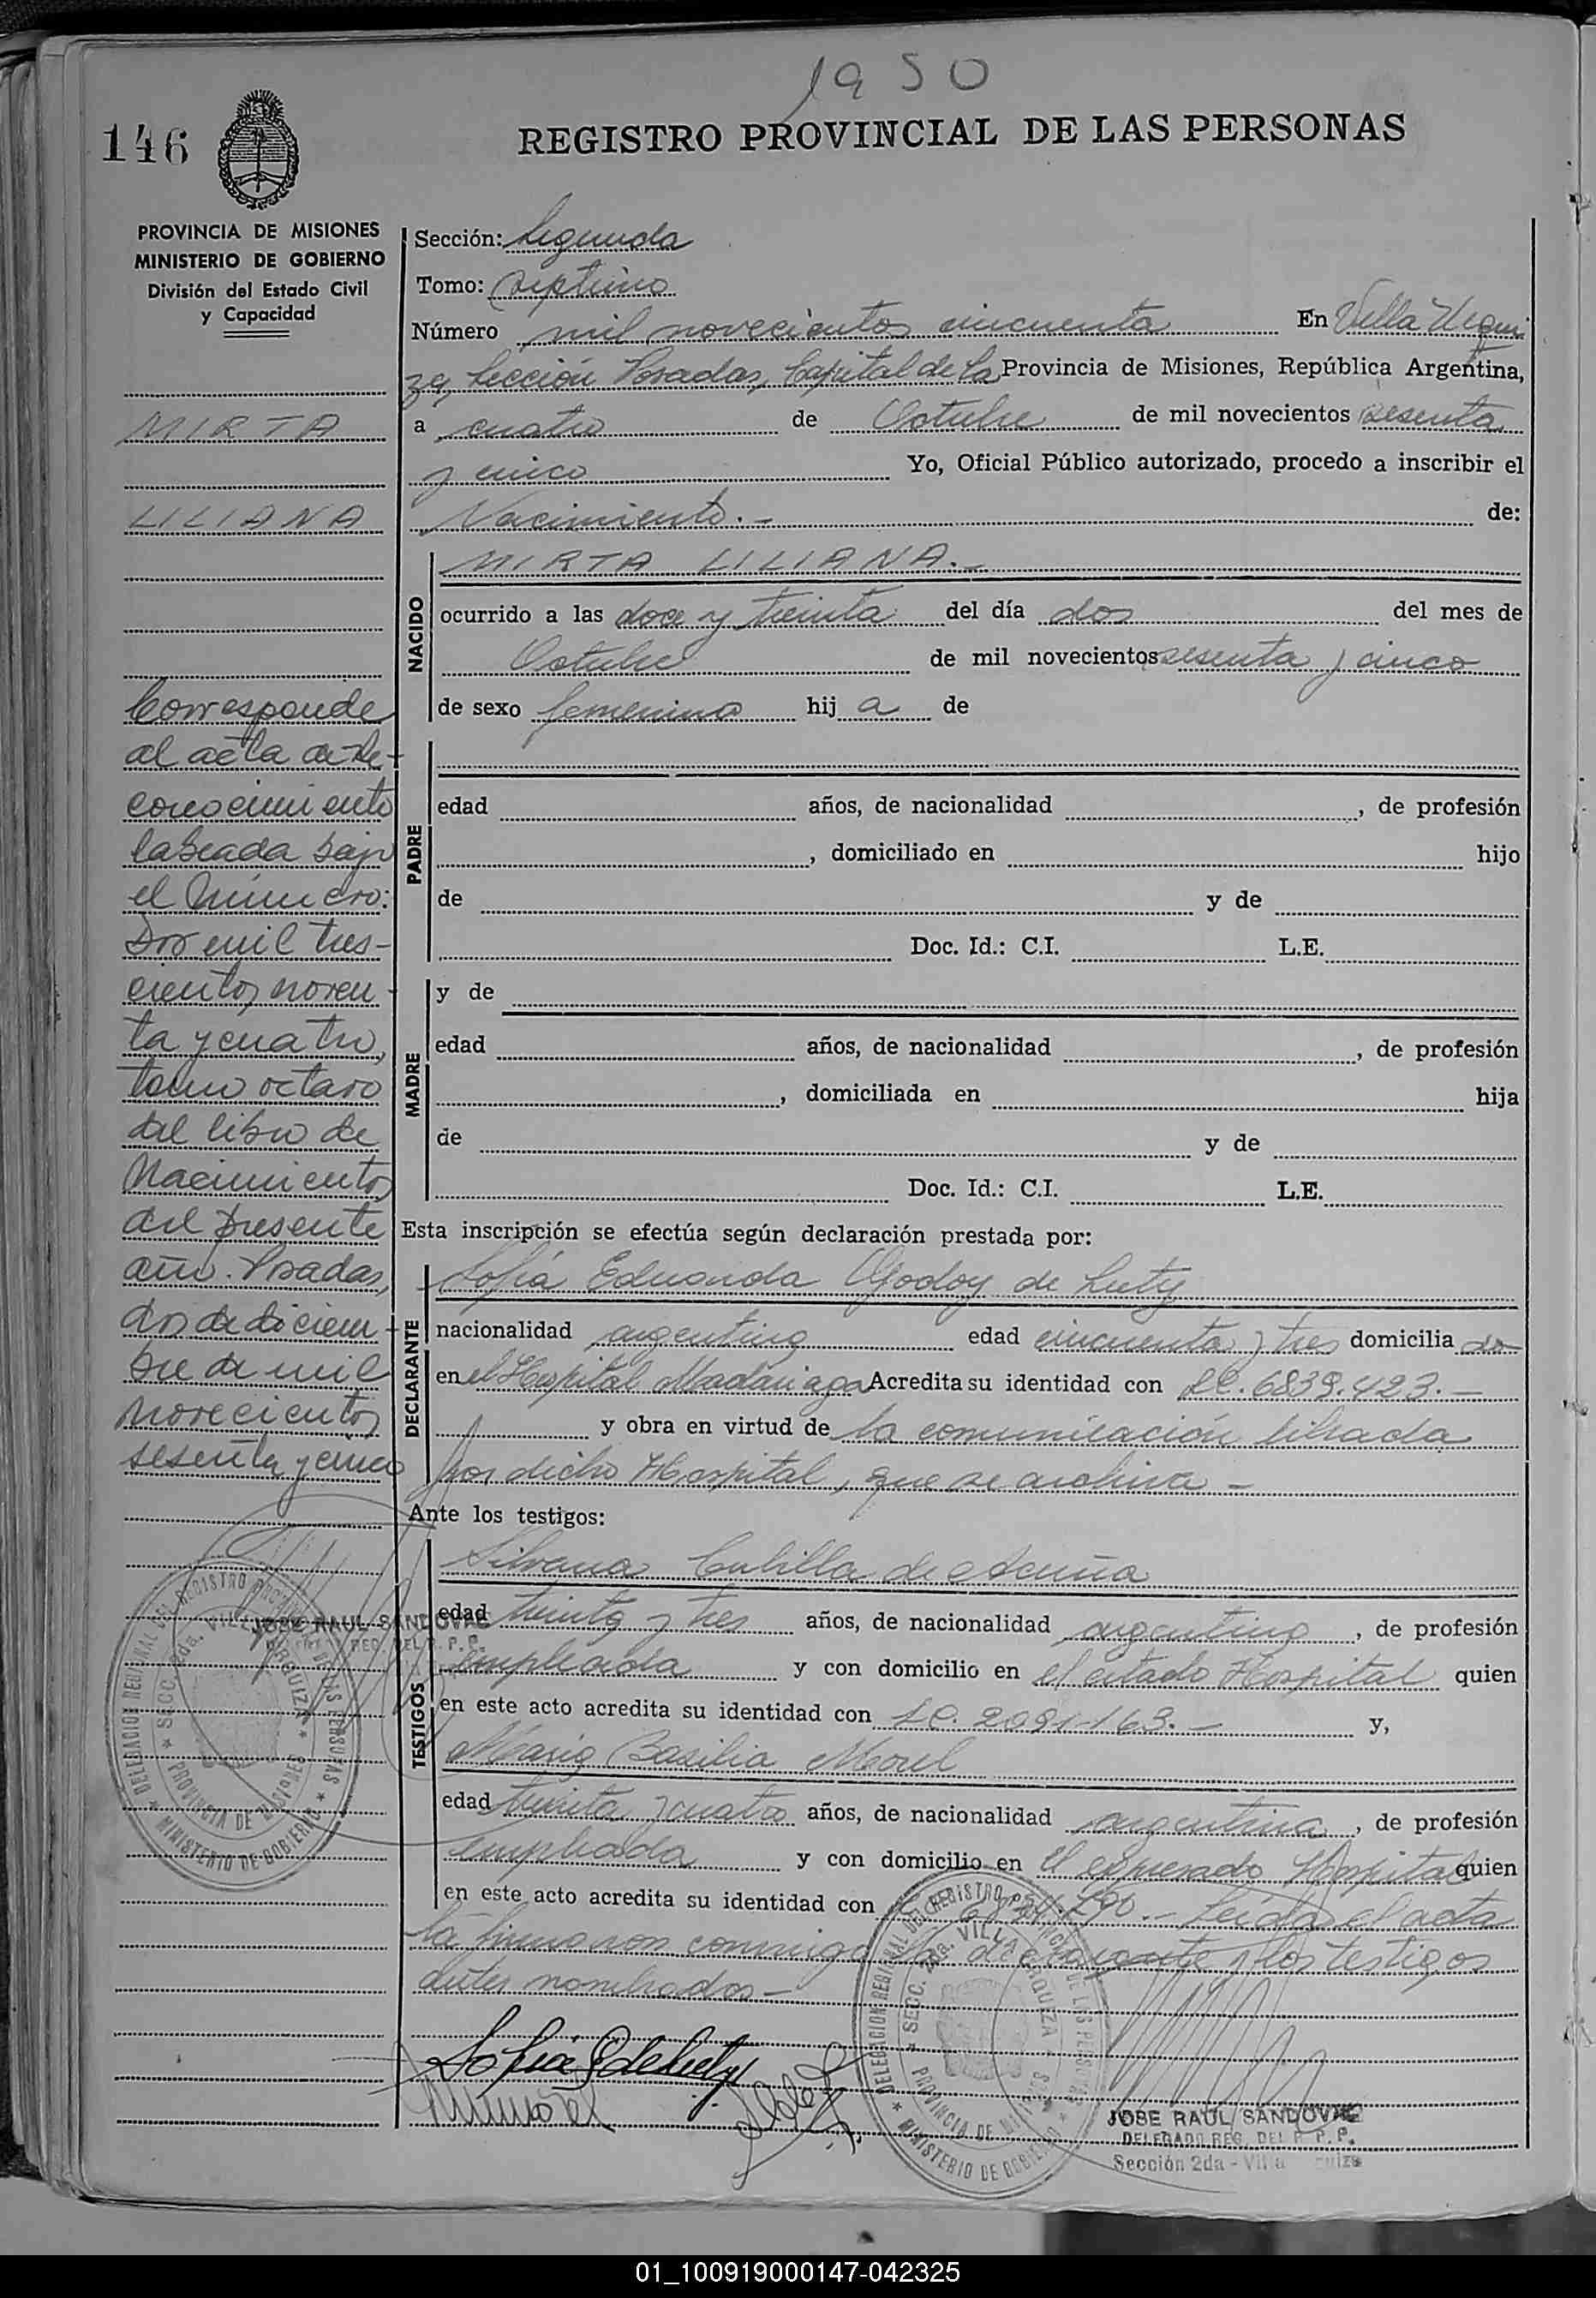 1950
146
REGISTRO PROVINCIAL DE LAS PERSONAS
PROVINCIA DE MISIONES
MINISTERIO DE GOBIERNO
División del Estado Civil
y Capacidad
MIRTA
LILIANA
Corresponde
al acta de Re-
conocimiento
labrada bajo
el Número:
Dos mil tres-
cientos noven-
ta y cuatro,
tomo octavo
del libro de
Nacimientos
del presente
año. Posadas,
dos de diciem-
bre de mil
novecientos
sesenta y cinco
Sección: Segunda
Tomo: Septimo
Número mil novecientos cincuenta En Villa Urqui
za, Sección Posadas, Capital de la Provincia de Misiones, República Argentina,
a cuatro de Octubre de mil novecientos sesenta
y cinco Yo, Oficial Público autorizado, procedo a inscribir el
Nacimiento.- de:
NACIDO
MIRTA LILIANA.-
ocurrido a las doce y treinta del día dos del mes de
Octubre de mil novecientos sesenta y cinco
de sexo femenino hij a de
PADRE
edad años, de nacionalidad , de profesión
, domiciliado en hijo
de y de
Doc. Id.: C.I. L.E.
MADRE
y de
edad años, de nacionalidad , de profesión
, domiciliada en hija
de y de
Doc. Id.: C.I. L.E.
Esta inscripción se efectúa según declaración prestada por:
DECLARANTE
Sofía Eduarda Godoy de Luty
nacionalidad argentina edad cincuenta y tres domicilia da
en el Hospital Madariaga Acredita su identidad con LC. 6839.423.-
y obra en virtud de la comunicación librada
por dicho Hospital, que se archiva -
Ante los testigos:
TESTIGOS
Silvana Cubilla de Acuña
edad treinta y tres años, de nacionalidad argentina, de profesión
empleada y con domicilio en el citado Hospital quien
en este acto acredita su identidad con LC. 2091.163.- y,
María Basilia Morel
edad treinta y cuatro años, de nacionalidad argentina, de profesión
empleada y con domicilio en el expresado Hospital quien
en este acto acredita su identidad con - Leída el acta
la firmaron conmigo la declarante y los testigos
antes nombrados-
Sofia G de Luty
JOSE RAUL SANDOVAL
DELEGADO REG. DEL R. P. P.
Sección 2da - Villa
JOSE RAUL SANDOVAL
REG. DEL R. P. P.
DELEGACION REGIONAL DEL REGISTRO PROVINCIAL DE LAS PERSONAS
SECC. 2da. VILLA URQUIZA
PROVINCIA DE MISIONES
MINISTERIO DE GOBIERNO
DELEGACION REGIONAL DEL REGISTRO PROVINCIAL DE LAS PERSONAS
SECC. 2da. VILLA URQUIZA
PROVINCIA DE MISIONES
MINISTERIO DE GOBIERNO
01_100919000147-042325